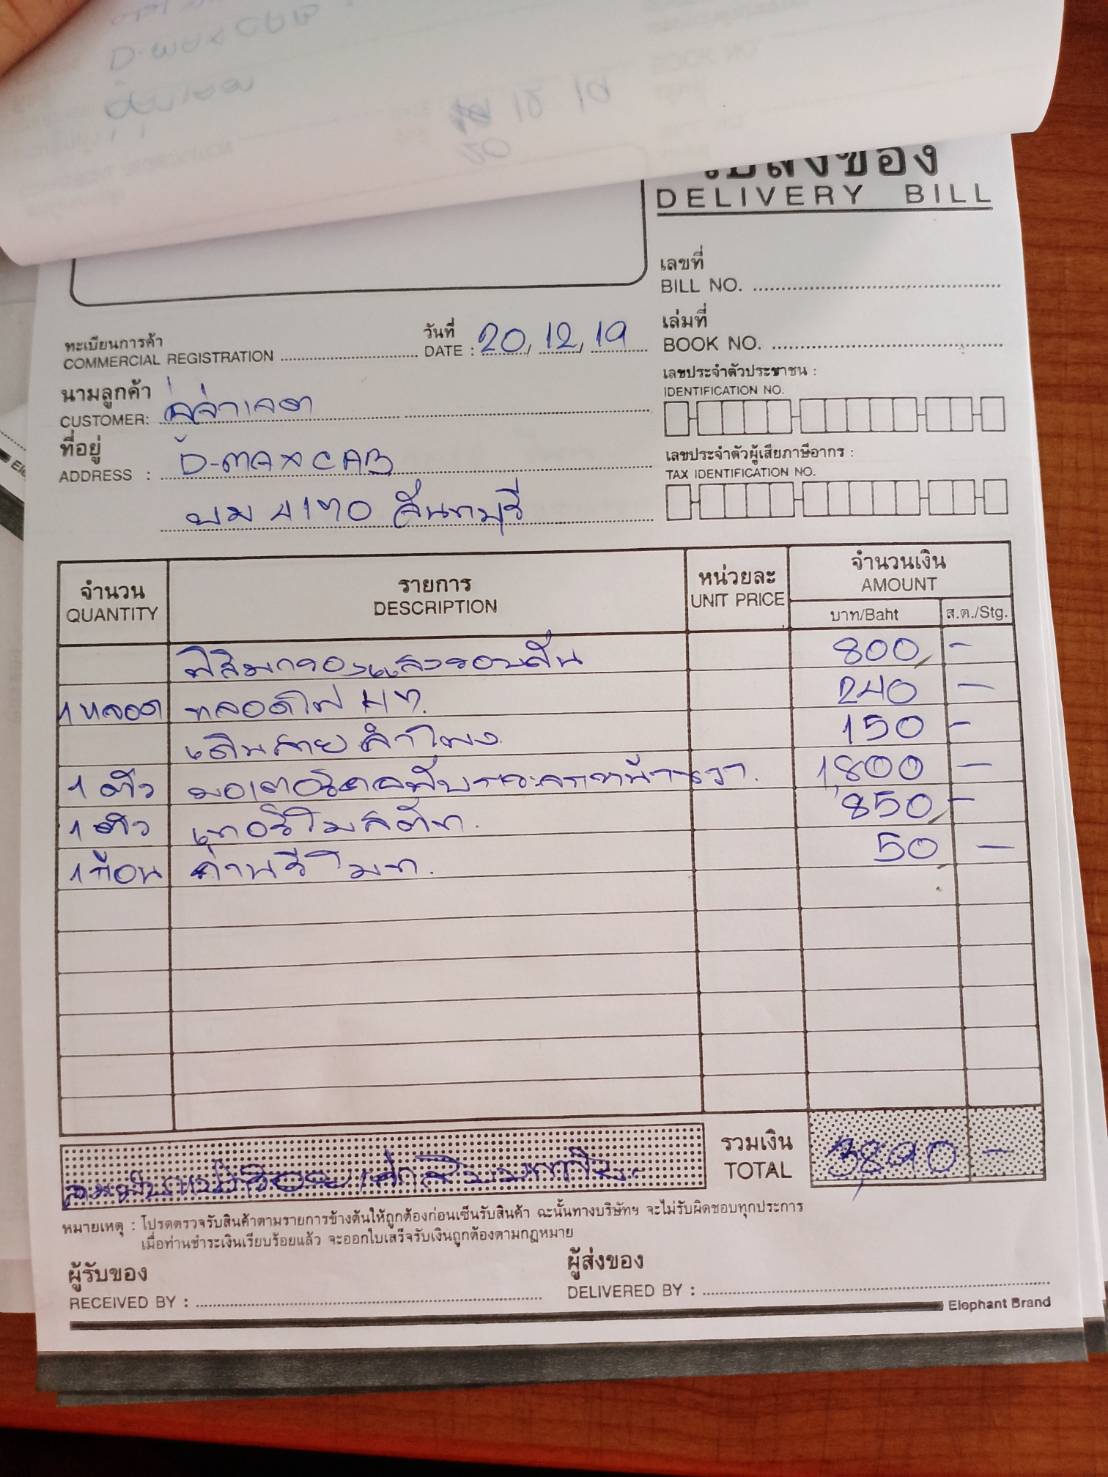 ใบส่งของ
DELIVERY BILL
เลขที่
BILL NO.
ทะเบียนการค้า
COMMERCIAL REGISTRATION
วันที่
DATE : 20, 12, 19
เล่มที่
BOOK NO.
นามลูกค้า
CUSTOMER:
เลขประจำตัวประชาชน :
IDENTIFICATION NO.
ที่อยู่
ADDRESS : D-MAX CAB
บม 4170 จันทบุรี
เลขประจำตัวผู้เสียภาษีอากร :
TAX IDENTIFICATION NO.
จำนวน รายการ หน่วยละ จำนวนเงิน
QUANTITY DESCRIPTION UNIT PRICE AMOUNT
บาท/Baht ส.ต./Stg.
ฟิล์มกรองแสงรอบคัน 800 -
1 หลอด หลอดไฟ 240 -
เดินสายลำโพง 150 -
1 ตัว 1,800 -
1 ตัว 850 -
1 ก้อน ถ่านรีโมท. 50 -
รวมเงิน
TOTAL 3,890 -
หมายเหตุ : โปรดตรวจรับสินค้าตามรายการข้างต้นให้ถูกต้องก่อนเซ็นรับสินค้า ฉะนั้นทางบริษัทฯ จะไม่รับผิดชอบทุกประการ
เมื่อท่านชำระเงินเรียบร้อยแล้ว จะออกใบเสร็จรับเงินถูกต้องตามกฎหมาย
ผู้รับของ
RECEIVED BY :
ผู้ส่งของ
DELIVERED BY :
Elephant Brand